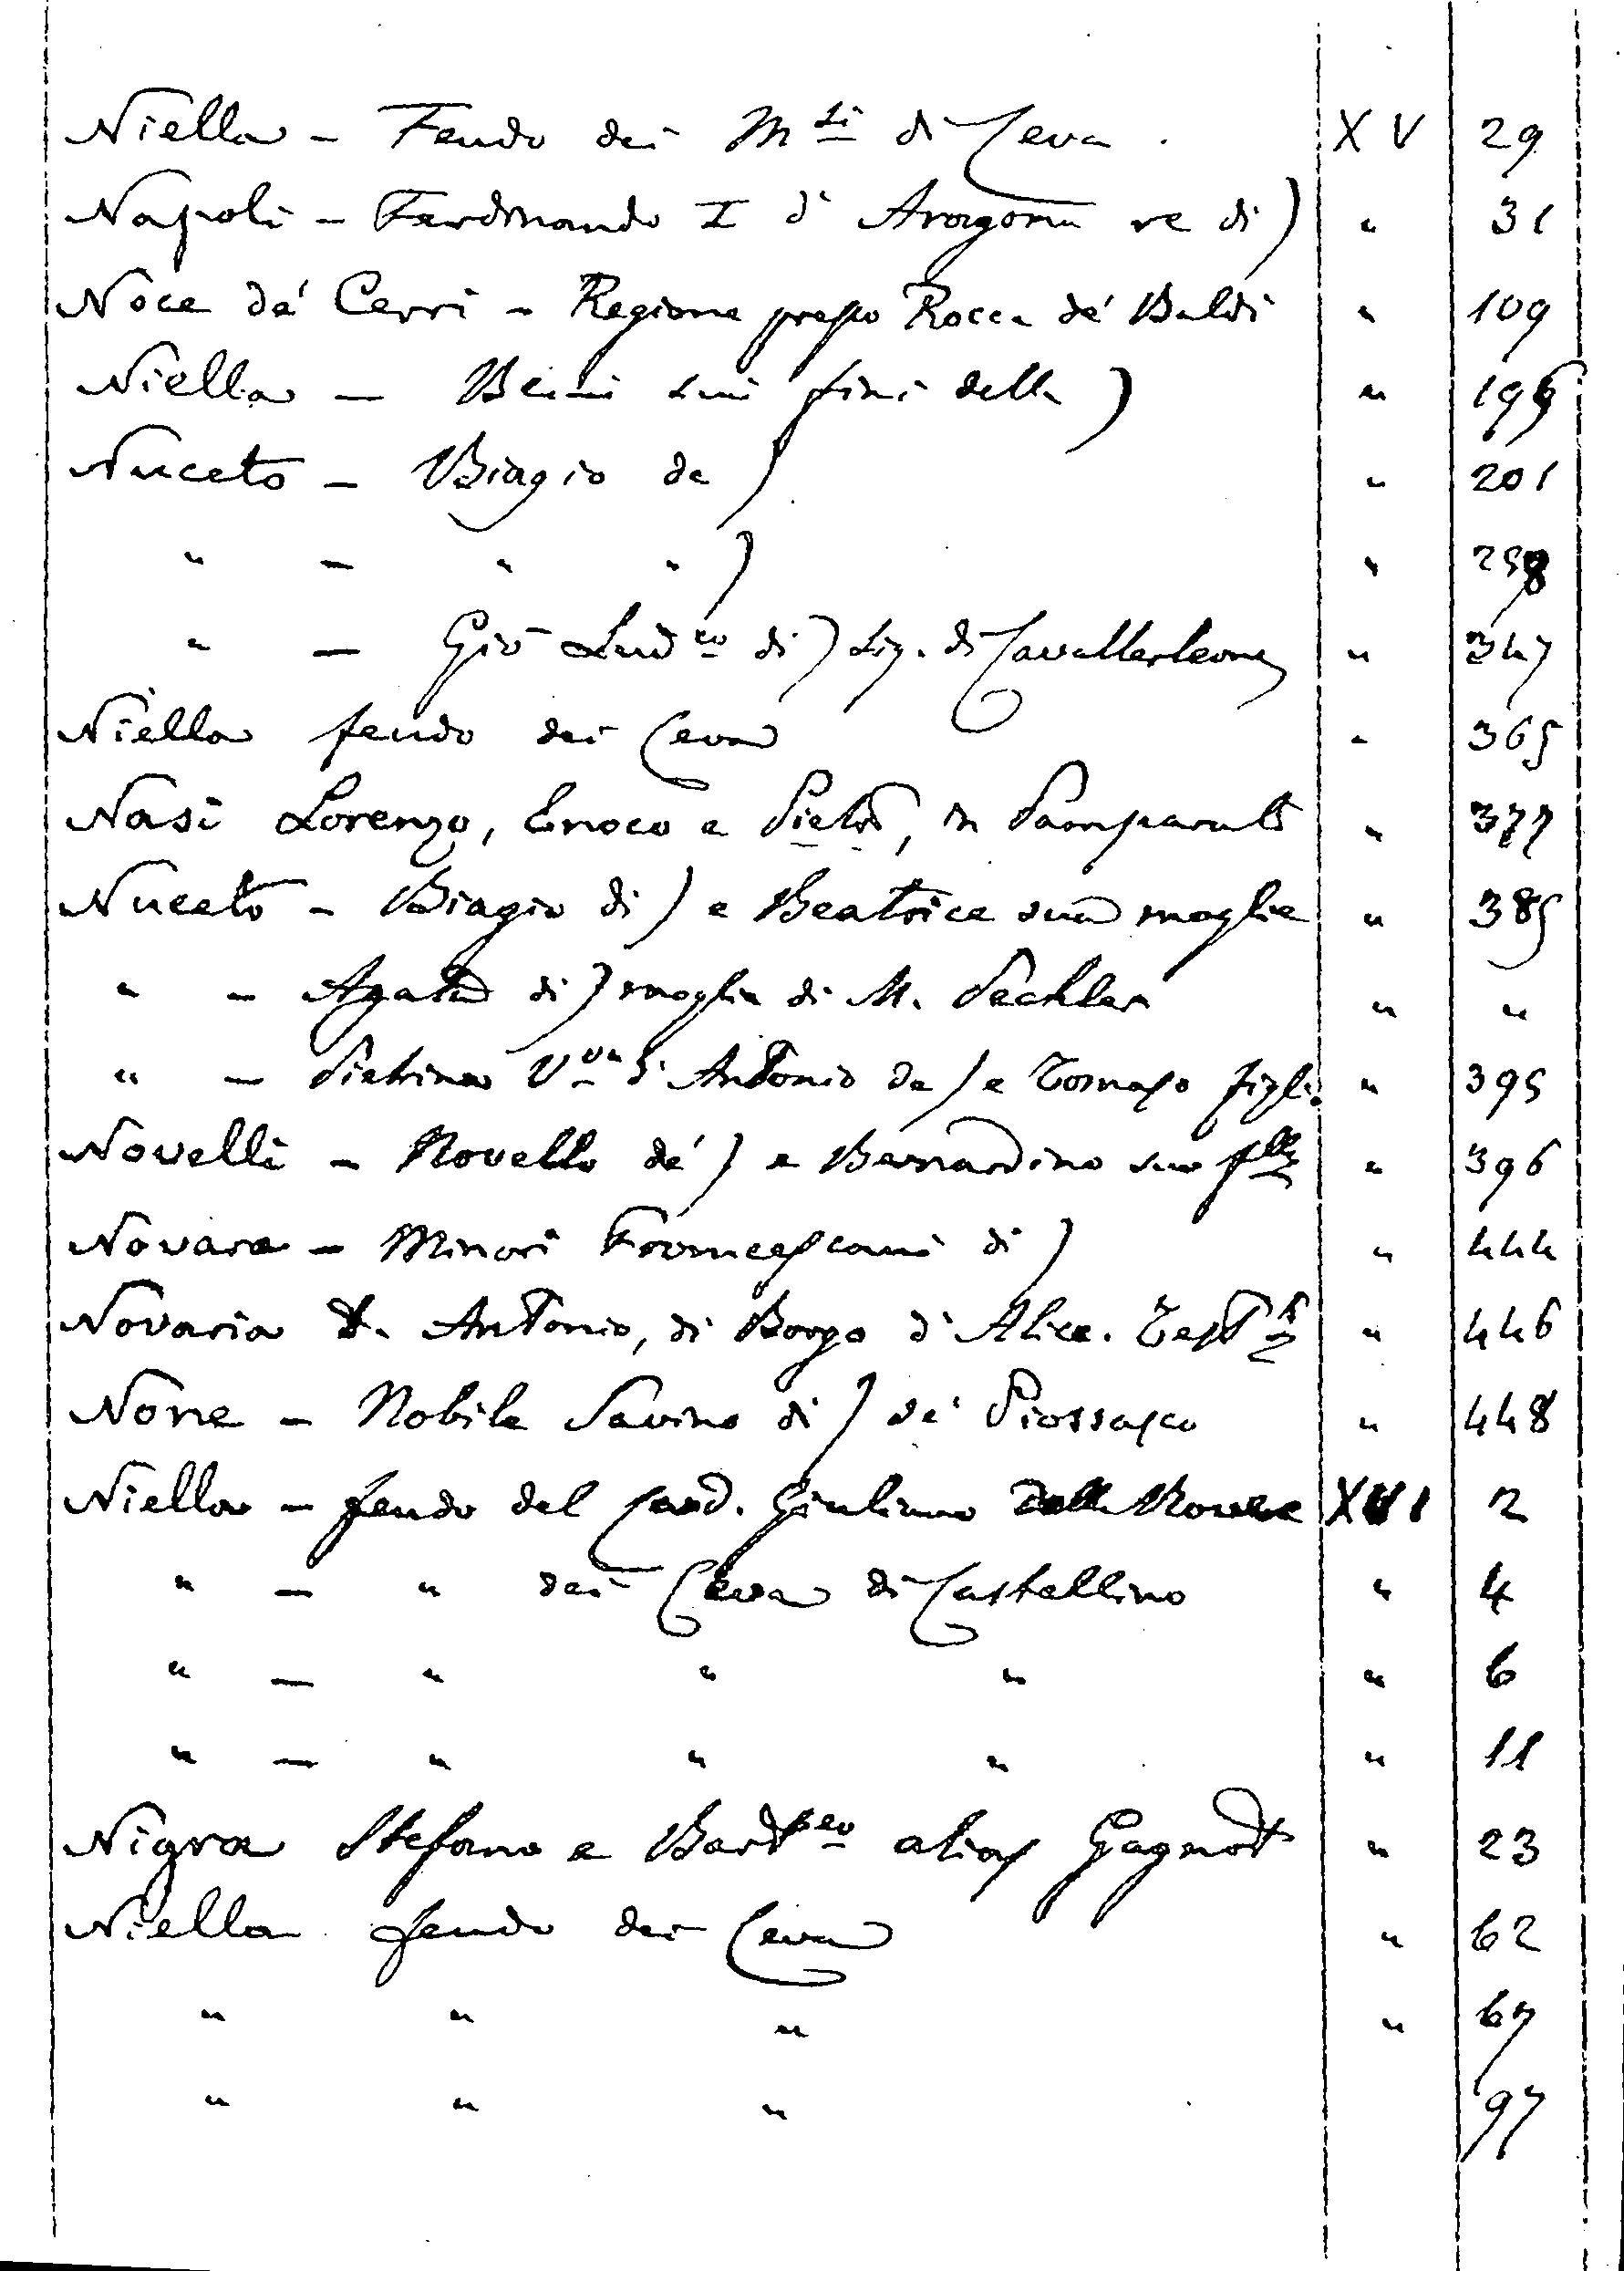 Niella - Feudo dei M.si di Ceva . XV 29
Napoli - Ferdinando I d' Aragona re di) " 31
Noce de' Cerri - Regione presso Rocca de' Baldi " 109
Niella - Beni sui fini della ) "
Nuceto - Biagio de ) " 201
" - " " ) "
" - Gio Lud.co di ) Sig. di Cavallerleone " 347
Niella feudo dei Ceva " 365
Nasi Lorenzo, Enoco e Pietro, in Pamparato " 377
Nuceto - Biagio di ) e Beatrice sua moglie " 385
" - Agata di ) moglie di M. " "
" - Pietrina V.va di Antonio de ) e Tomaso figlio " 395
Novelli - Novello de' ) e Bernardino suo f.llo " 396
Novara - Minori Francescani di ) " 444
Novaria D. Antonio, di Borgo d' Alice. " 446
None - Nobile Savino di ) de' Piossasco " 448
Niella - feudo del Card. Giuliano della Rovere XVI 2
" - " dei Ceva di Castellino " 4
" - " " " " 6
" - " " " " 11
Nigra Stefano e Bart.meo alias Gagnot " 23
Niella feudo dei Ceva " 62
" " " " 67
" " " 97